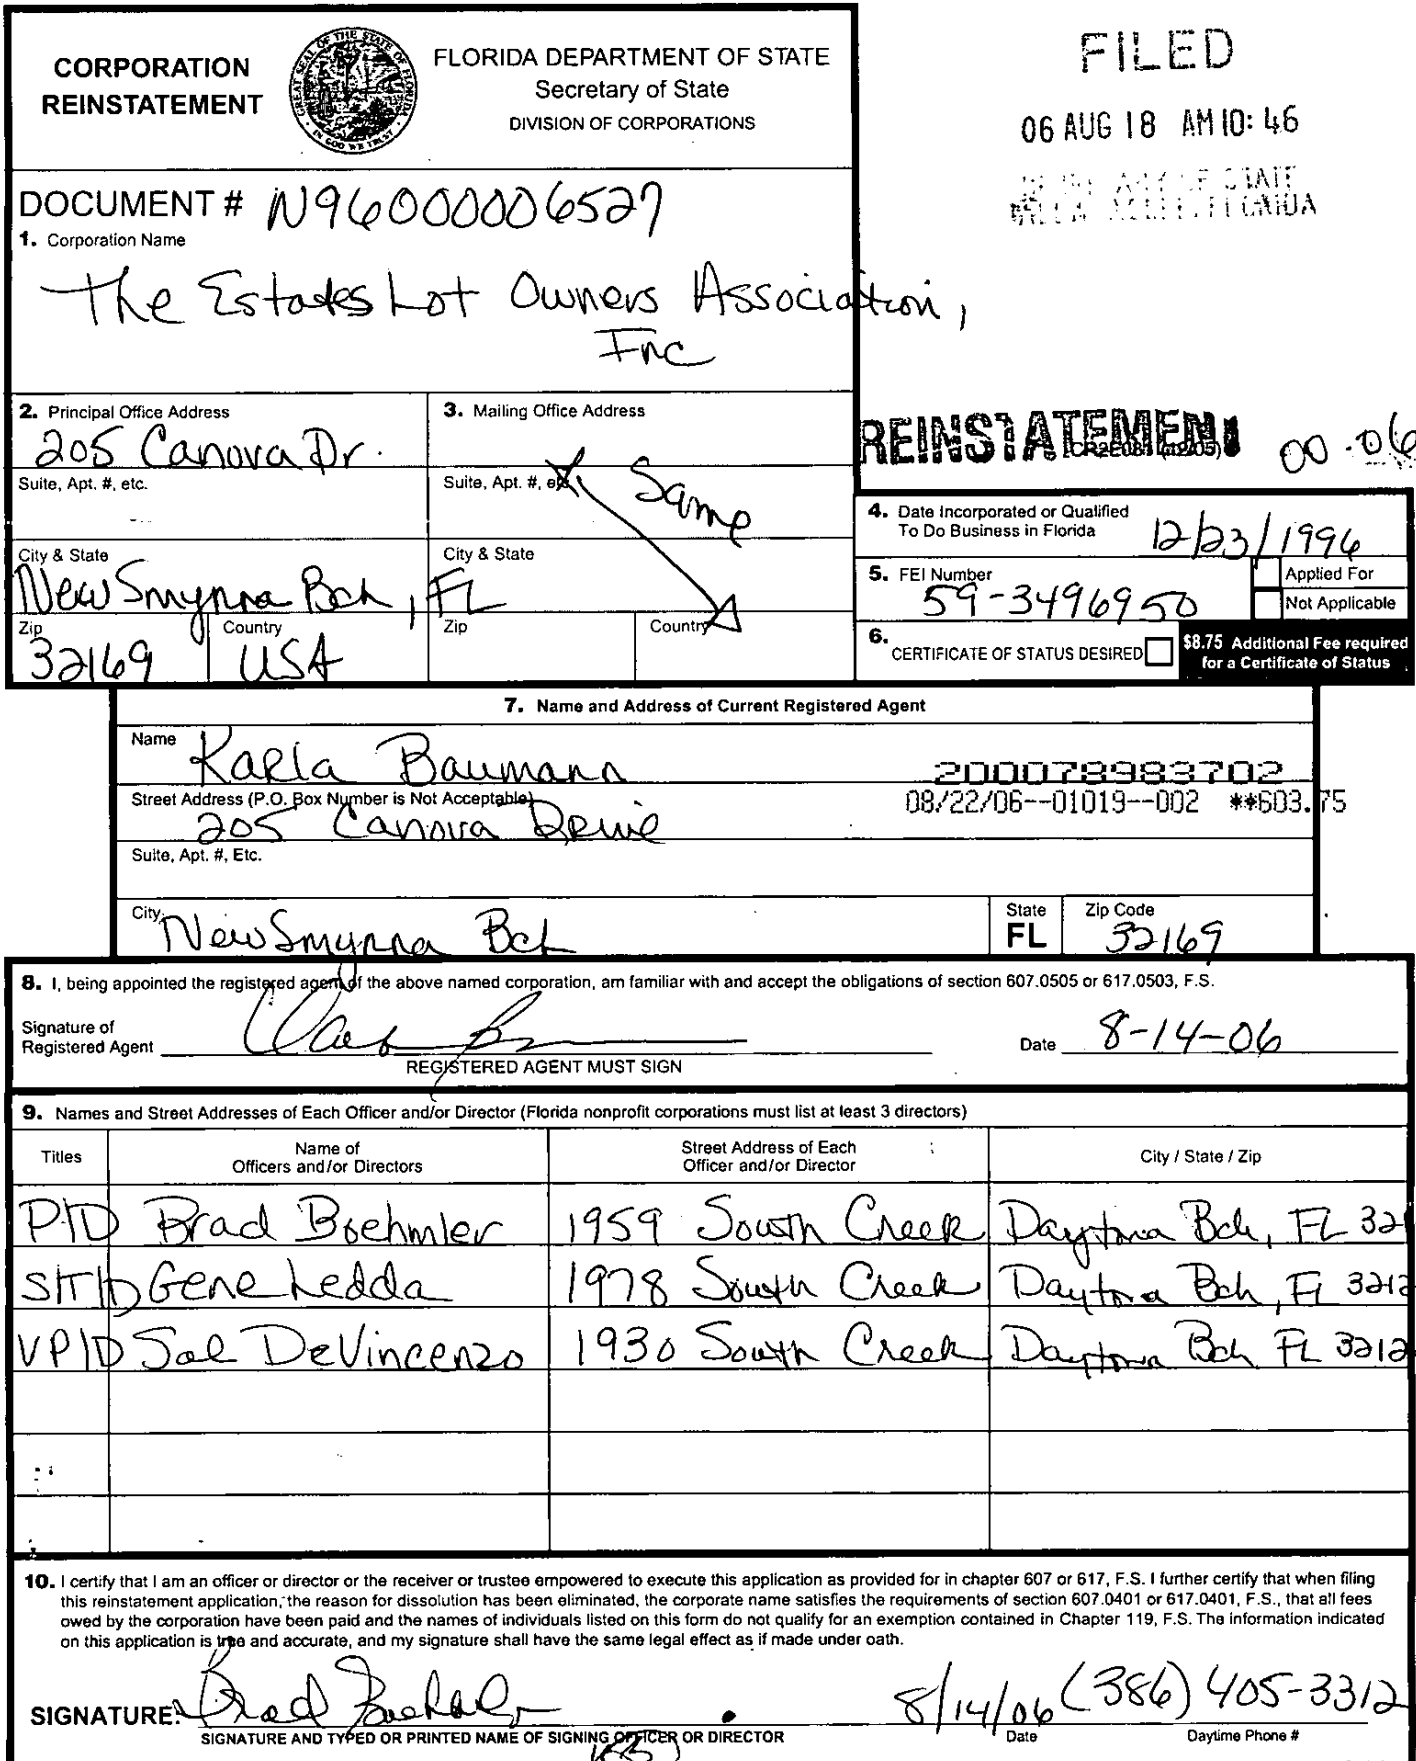 CORPORATION
REINSTATEMENT
GREAT SEAL OF THE STATE OF FLORIDA
IN GOD WE TRUST
FLORIDA DEPARTMENT OF STATE
Secretary of State
DIVISION OF CORPORATIONS
FILED
06 AUG 18 AM 10:46
DOCUMENT # N96000006527
1. Corporation Name
The Estates Lot Owners Association,
Inc
REINSTATEMENT 00-06
CR2E081 (12/05)
2. Principal Office Address
205 Canova Dr.
Suite, Apt. #, etc.
City & State
New Smyrna Bch, FL
Zip
32169
Country
USA
3. Mailing Office Address
Suite, Apt. #, etc.
Same
City & State
Zip
Country
4. Date Incorporated or Qualified
To Do Business in Florida
12/23/1996
5. FEI Number
59-3496950
Applied For
Not Applicable
6.
CERTIFICATE OF STATUS DESIRED
$8.75 Additional Fee required
for a Certificate of Status
7. Name and Address of Current Registered Agent
Name
Karla Baumann
200078983702
08/22/06--01019--002 **603.75
Street Address (P.O. Box Number is Not Acceptable)
205 Canova Drive
Suite, Apt. #, Etc.
City
New Smyrna Bch
State
FL
Zip Code
32169
8. I, being appointed the registered agent of the above named corporation, am familiar with and accept the obligations of section 607.0505 or 617.0503, F.S.
Signature of
Registered Agent
REGISTERED AGENT MUST SIGN
Date 8-14-06
9. Names and Street Addresses of Each Officer and/or Director (Florida nonprofit corporations must list at least 3 directors)
Titles
Name of
Officers and/or Directors
Street Address of Each
Officer and/or Director
City / State / Zip
P/D Brad Boehmler 1959 South Creek Daytona Bch, FL 321
S/T/D Gene Ledda 1978 South Creek Daytona Bch, Fl 3212
VP/D Sal DeVincenzo 1930 South Creek Daytona Bch FL 3212
10. I certify that I am an officer or director or the receiver or trustee empowered to execute this application as provided for in chapter 607 or 617, F.S. I further certify that when filing
this reinstatement application, the reason for dissolution has been eliminated, the corporate name satisfies the requirements of section 607.0401 or 617.0401, F.S., that all fees
owed by the corporation have been paid and the names of individuals listed on this form do not qualify for an exemption contained in Chapter 119, F.S. The information indicated
on this application is true and accurate, and my signature shall have the same legal effect as if made under oath.
SIGNATURE: Brad Boehmler 8/14/06 (386) 405-3312
SIGNATURE AND TYPED OR PRINTED NAME OF SIGNING OFFICER OR DIRECTOR
Date
Daytime Phone #